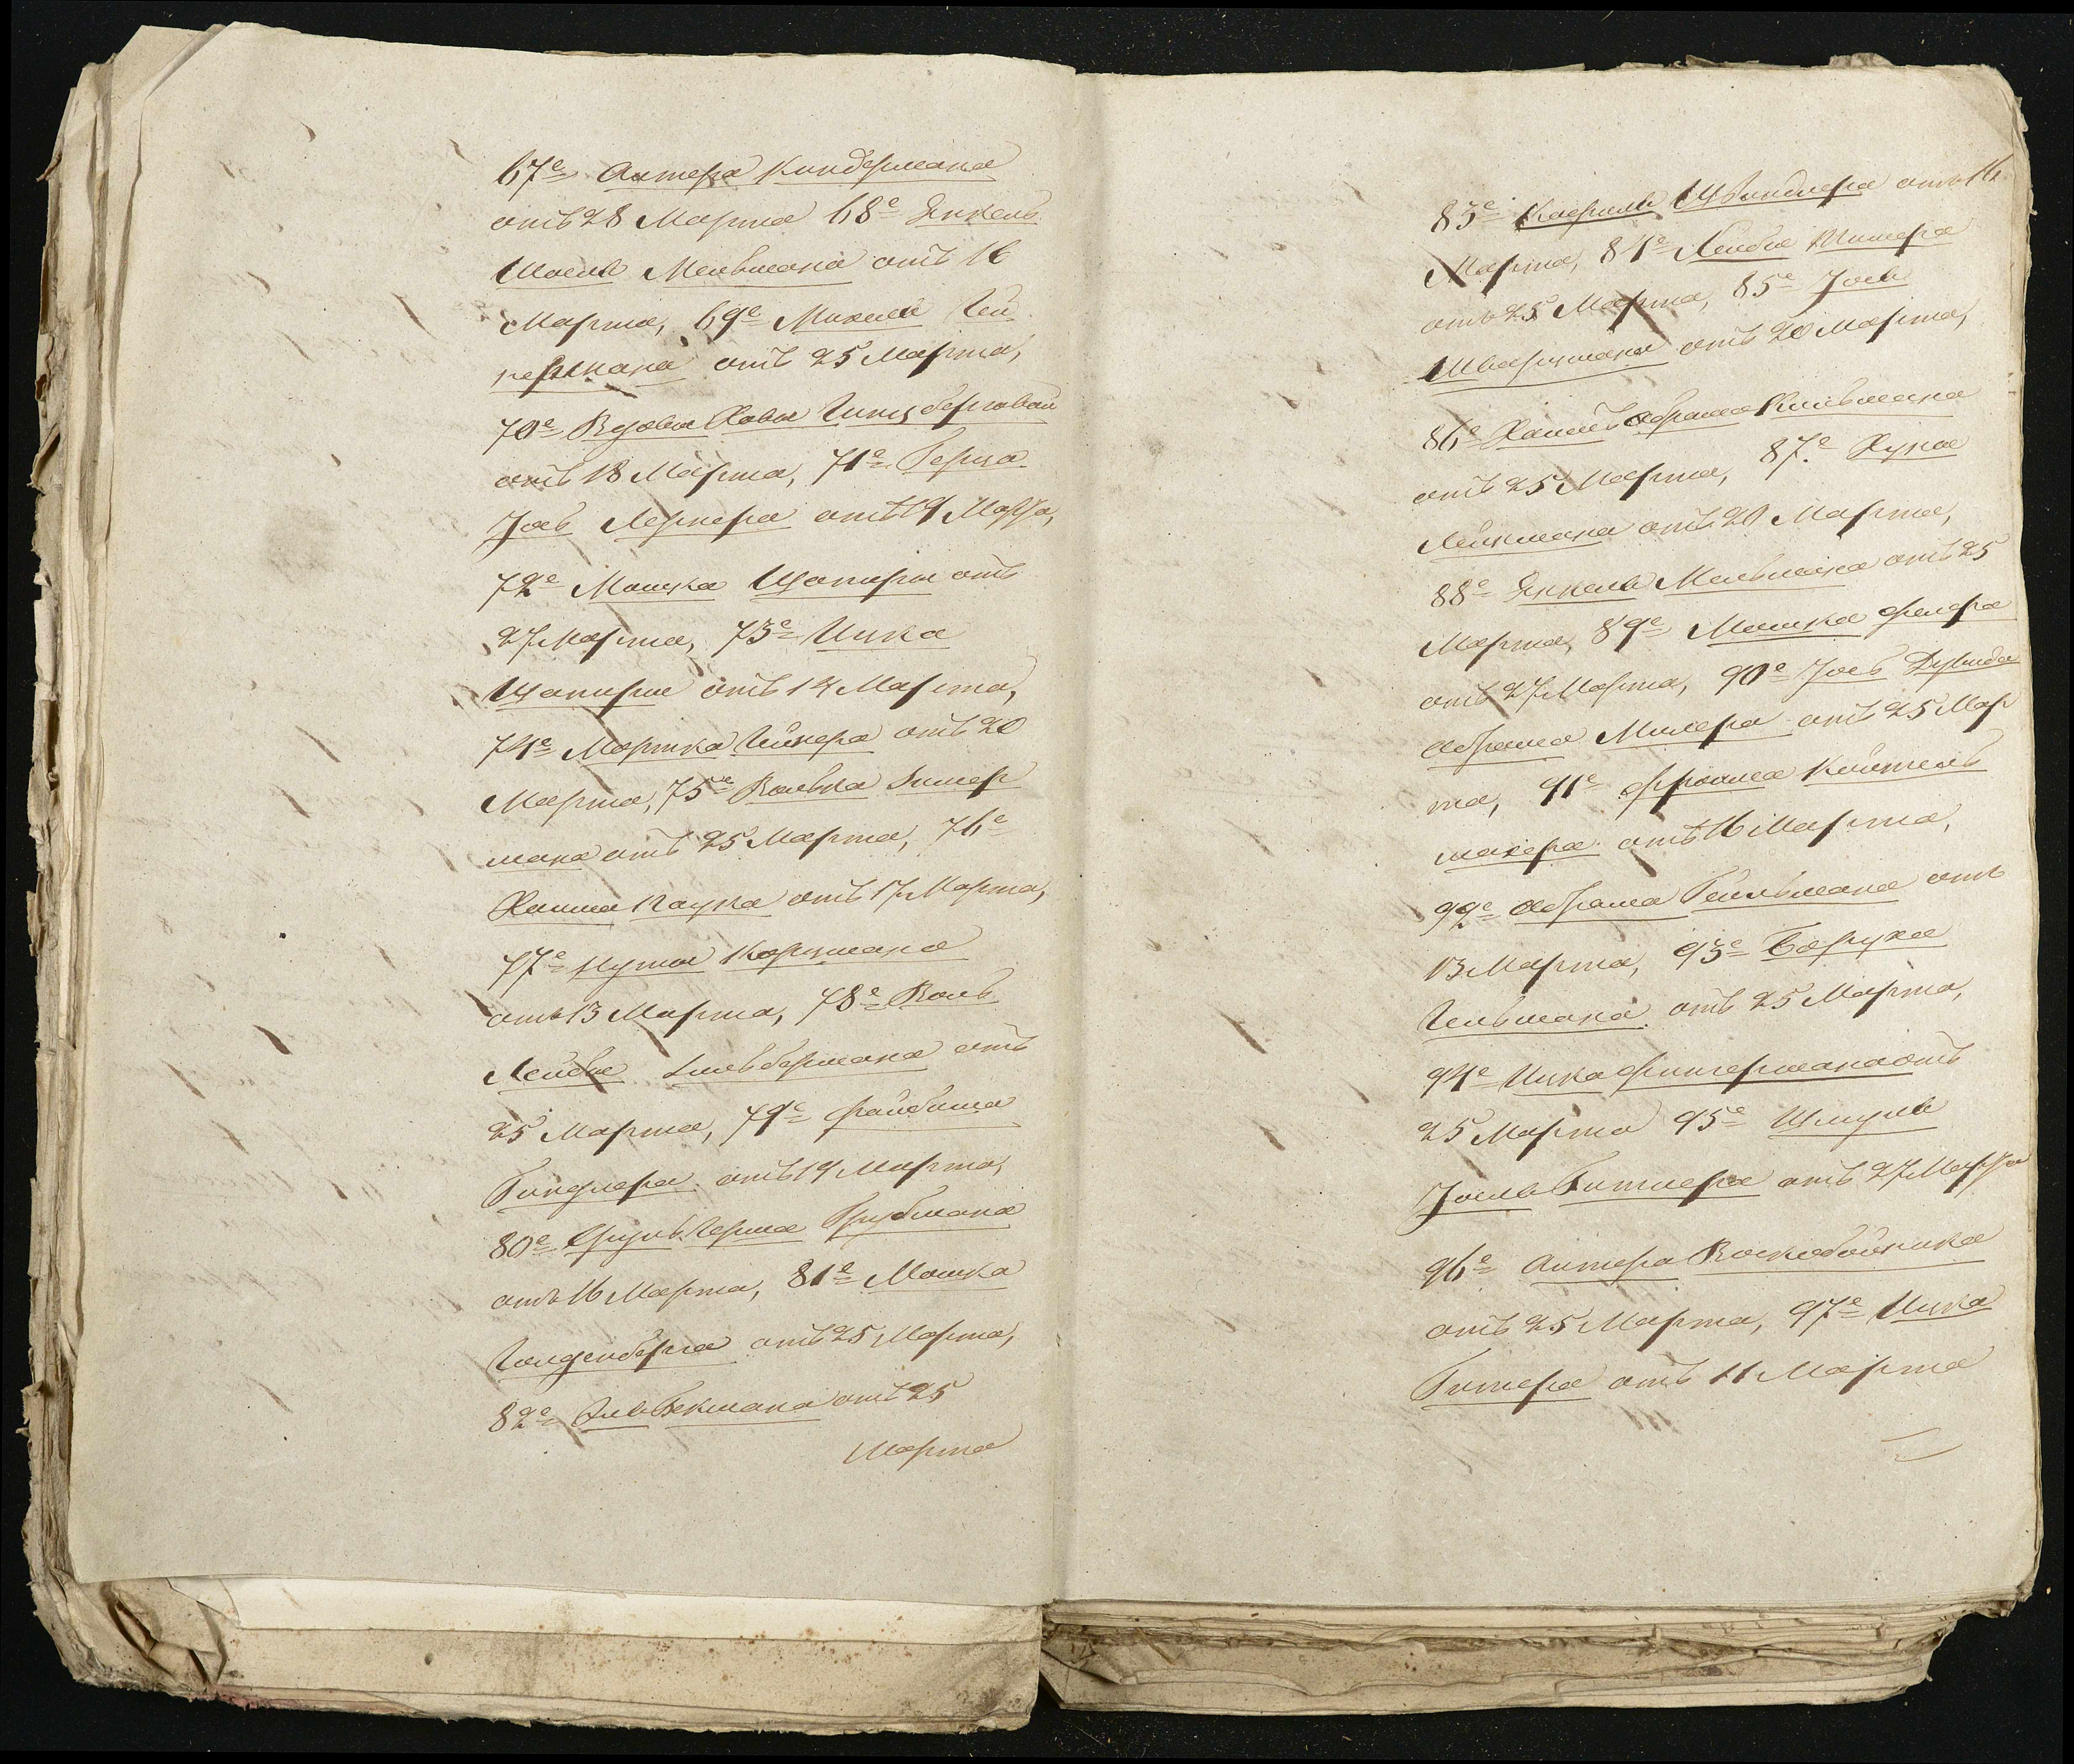 67е Антера Киндермана
отъ 28 Марта 68е Янкель
Шоеля Мельмана отъ 16
Марта, 69е Михеля Гей
нермана отъ 25 Марта,
70е Вдовы Хавы Гинцберговой
отъ 18 Марта, 71е Герца
Іось Лернера отъ 19 Марта,
72е Мошка Шапиры отъ
27 Марта, 73е Ицка
Шапиры отъ 14 Марта,
74е Мортка Гинера отъ 20
Марта, 75е Вольва Зимер
мана отъ 25 Марта, 76е
Хаима Каука отъ 17 Марта,
77е Нуты Корцмана
отъ 13 Марта, 78е Воль
Лейбы Зильбермана отъ
25 Марта, 79е Файбиша
Гандлера отъ 19 Марта,
80е Сруль Герша Грубмана
отъ 16 Марта, 81е Мошка
Голденберга отъ 25 Марта,
82е Эль Бекмана отъ 25
Марта
83е Швиндлера отъ 16
Марта, 84е Лейбы Шитера
отъ 25 Марта, 85е Іоеля
Шварцмана отъ 20 Марта,
86е Хаимъ Абрама Кильмана
отъ 25 Марта, 87е Нухы
Лейкмана отъ 20 Марта,
88е Янкеля Мельмана отъ 25
Марта, 89е Мошка Фелера
отъ 27 Марта, 90е Іось Дувида
Абрама Милера отъ 25 Мар
та, 91е Фроима Койтель
махера отъ 16 Марта,
92е Абрама Гельмана отъ
13 Марта, 93е Боруха
Гельмана отъ 25 Марта,
94е Ицка Фингермана отъ
25 Марта 95е Шмуля
Іоеля Гитлера отъ 27 Марта
96е Антера Воскобойника
отъ 25 Марта, 97е Ицка
Гитера отъ 11 Марта